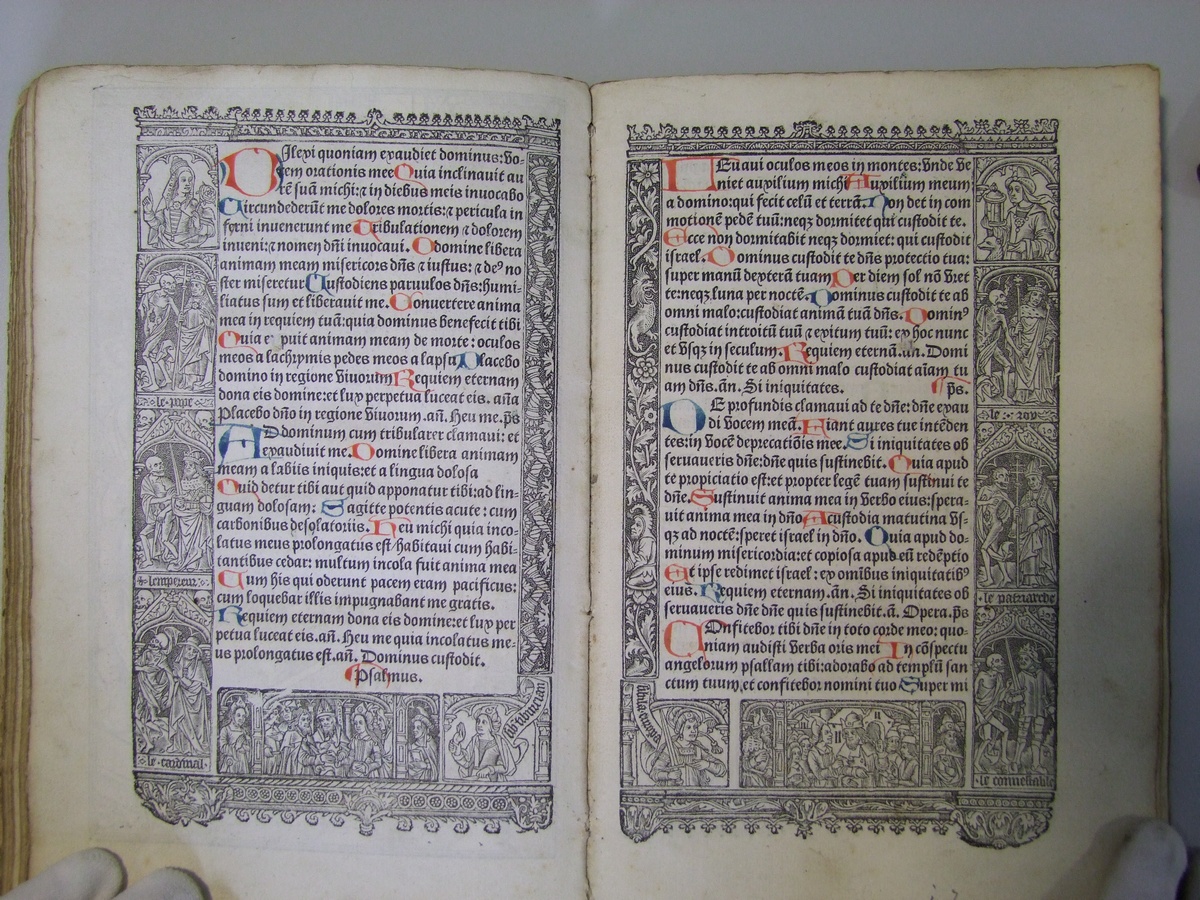 Ilexi quoniam exaudiet dominus: vo-
cem orationis mee Quia inclinauit au
rē suā michi: ⁊ in diebus meis inuocabo
Circundederūt me dolores mortis: ⁊ pericula in
ferni inuenerunt me Tribulationem ⁊ dolorem
inueni: ⁊ nomen dn̄i inuocaui. O domine libera
animam meam misericors dn̄s ⁊ iustus: ⁊ deꝰ no
ster miseretur Custodiens paruulos dn̄s: humi-
liatus sum et liberauit me. Conuertere anima
mea in requiem tuā: quia dominus benefecit tibi
Quia e puit animam meam de morte: oculos
meos a lachrymis pedes meos a lapsu Placebo
domino in regione viuorum Requiem eternam
dona eis domine: et lux perpetua luceat eis. aña
Placebo dño in regione viuorum. añ. Heu me. p̄s
AD dominum cum tribularer clamaui: et
exaudiuit me. Domine libera animam
meam a labiis iniquis: et a lingua dolosa
Quid detur tibi aut quid apponatur tibi: ad lin-
guam dolosam: Sagitte potentis acute: cum
carbonibus desolatoriis. Heu michi quia inco-
latus meus prolongatus est / habitaui cum habi-
tantibus cedar: multum incola fuit anima mea
Cum his qui oderunt pacem eram pacificus:
cum loquebar illis impugnabant me gratis.
Requiem eternam dona eis domine: et lux per
petua luceat eis. añ. Heu me quia incolatus me-
us prolongatus est. añ. Dominus custodit.
Psalmus.
le pape
lempereur
le cardinal
LEuaui oculos meos in montes: vnde ve
niet auxilium michi Auxilium meum
a domino: qui fecit celū et terrā. Non det in com
motionē pedē tuū: neqꝫ dormitet qui custodit te.
Ecce non dormitabit neqꝫ dormiet: qui custodit
israel. Dominus custodit te dn̄s protectio tua:
super manū dexterā tuam Per diem sol nō vret
te: neqꝫ luna per noctē. Dominus custodit te ab
omni malo: custodiat animā tuā dn̄s. Dominꝰ
custodiat introitū tuū ⁊ exitum tuū: ex hoc nunc
et vsqꝫ in seculum. Requiem eternā. añ. Domi
nus custodit te ab omni malo custodiat aīam tu
am dn̄s. añ. Si iniquitates. p̄s.
DE profundis clamaui ad te dn̄e: dn̄e exau
di vocem meā. Fiant aures tue intēden
tes: in vocē deprecatiōis mee. Si iniquitates ob
seruaueris dn̄e: dn̄e quis sustinebit. Quia apud
te propiciatio est: et propter legē tuam sustinui te
dn̄e. Sustinuit anima mea in verbo eius: spera-
uit anima mea in dn̄o A custodia matutina vs-
qꝫ ad noctē: speret israel in dn̄o. Quia apud do-
minum misericordia: et copiosa apud eū redēptio
Et ipse redimet israel: ex omībus iniquitatibꝰ
eius. Requiem eternam. añ. Si iniquitates ob
seruaueris dn̄e dn̄e quis sustinebit. a. Opera. p̄s
COnfitebor tibi dn̄e in toto corde meo: quo-
niam audisti verba oris mei In cōspectu
angelorum psallam tibi: adorabo ad templū san
ctum tuum, et confitebor nomini tuo Super mi
le roy
le patriarche
le connestable